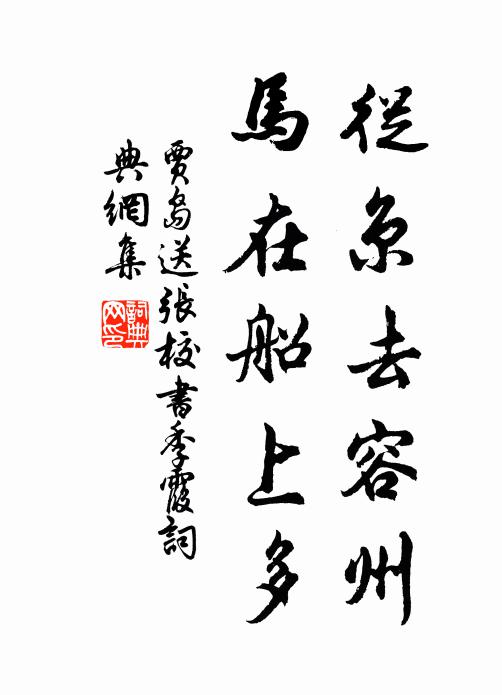 從京去容州
馬在船上多
賈島送張校書季霞詞
典網集
詞典
网印